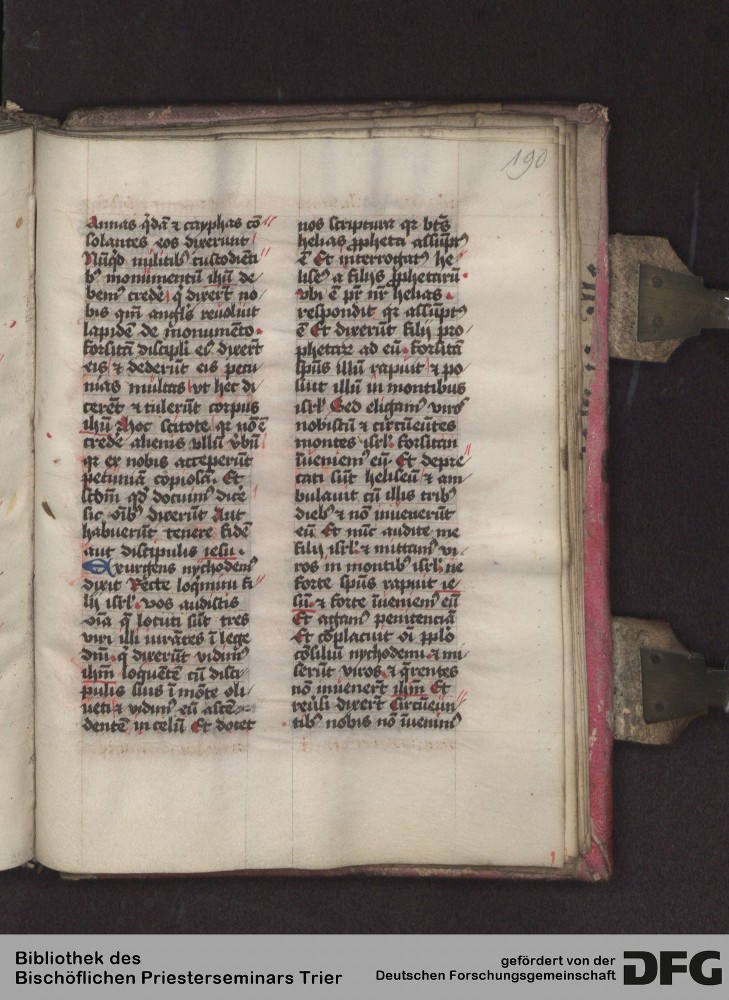 190
Annas q̄dā ⁊ cayphas cō
solantes eos dixerunt
Nūq̄d militibꝰ custodiēti
bꝰ monumentū ihū de
bemꝰ crede q̄ dixerūt no
bis qm̄ angl's reuoluit
lapidem de monumēto.
forsitā discipli eiꝰ dixerūt
eis ⁊ dederūt eis pecu
nias multas vt hec di
cerēt ⁊ tulerūt corpus
ihū ⁊ hoc scitote qꝛ nō ē
crede alienis vllū v̄bū
qꝛ ex nobis acceperūt
petuniā copiosā. Et
scd̄m qd̄ docuimꝰ dice
sic oīb' dixerūt Aut
habuerūt tenere fidē
aut discipulis iesu.
Exurgens nychodemꝰ
dixit Recte loqmini fi
lij isrl'. vos audistis
oīa q̄ locuti sūt tres
viri illi iurātes ī lege
dn̄i. q̄ dixerūt vidimꝰ
ihm̄ loquētē cū disci
pulis suis ī mōte oli
ueti ⁊ vidimꝰ eū ascē
dentē in celū Et docet
nos scriptura qꝛ bt̄s
helias ꝓpheta assūptꝰ
ē Et interrogatꝰ he
liseꝰ a filijs ꝓphetarū
vbi ē pr̄ nr̄ helias.
respondit qꝛ assūptꝰ
ē Et dixerūt filij pro
phetaꝝ ad eū. forsitā
sp̄us illū rapuit ⁊ po
suit illū in montibus
isrl' Sed eligamꝰ viros
nobiscū ⁊ circūeūtes
montes isrl'. forsitan
īueniemꝰ eū. Et depre
cati sūt heliseū ⁊ am
bulauit cū illis tribꝰ
diebꝰ ⁊ nō inuenerūt
eū Et nūc audite me
filij isrl' ⁊ mittamꝰ vi
ros in montibꝰ isrl'. ne
forte sp̄us rapuit ie
sū. ⁊ forte īueniemꝰ eū
Et agamꝰ penitenciā
Et cōplacuit oī pplo
cōsiliū nychodemi. ⁊ mi
serūt viros. ⁊ q̄rentes
nō inuenerūt ihm̄ Et
reūsi dixerūt Circūeūn
tibꝰ nobis nō īuenimꝰ
Bibliothek des
Bischöflichen Priesterseminars Trier
gefördert von der
Deutschen Forschungsgemeinschaft
DFG